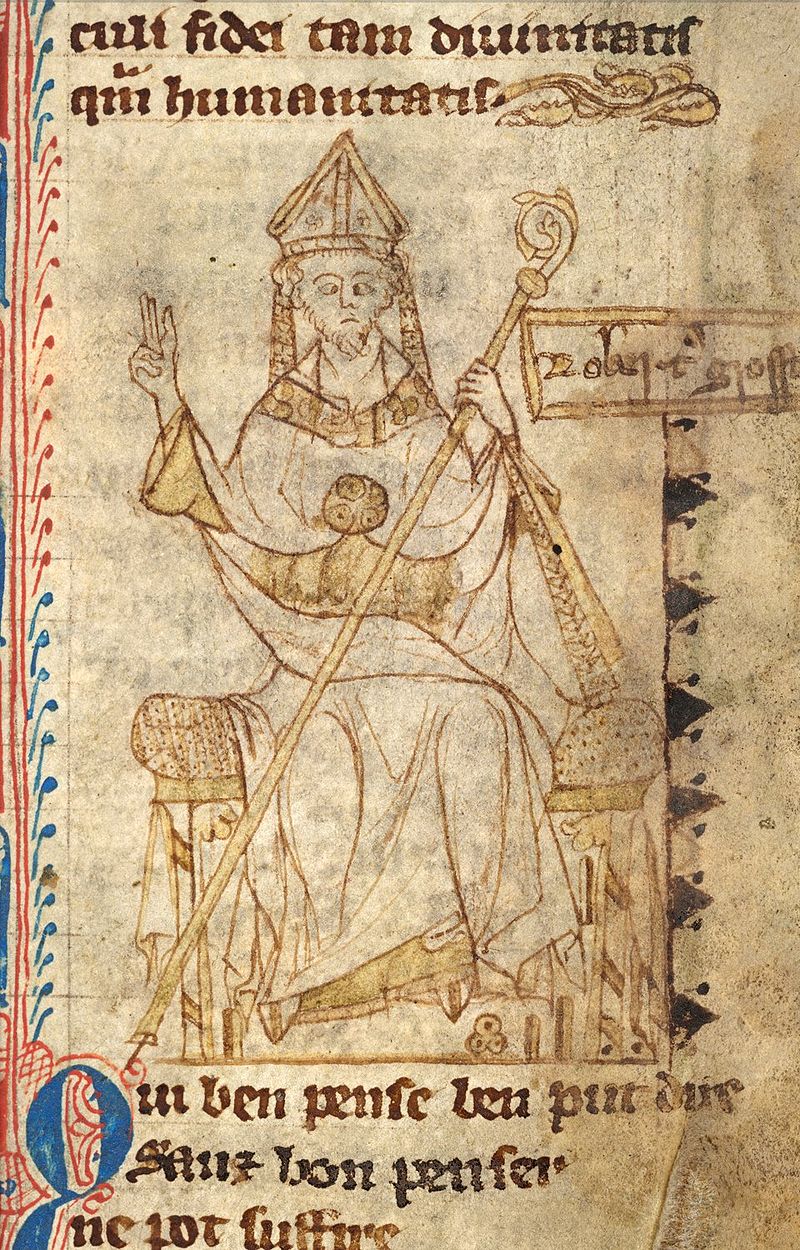 culi fidei tam diuinitatis
qm̄ humanitatis.
Robert' grosste
Qui ben pense ben put dire
Sanz bon penser
ne pot suffire